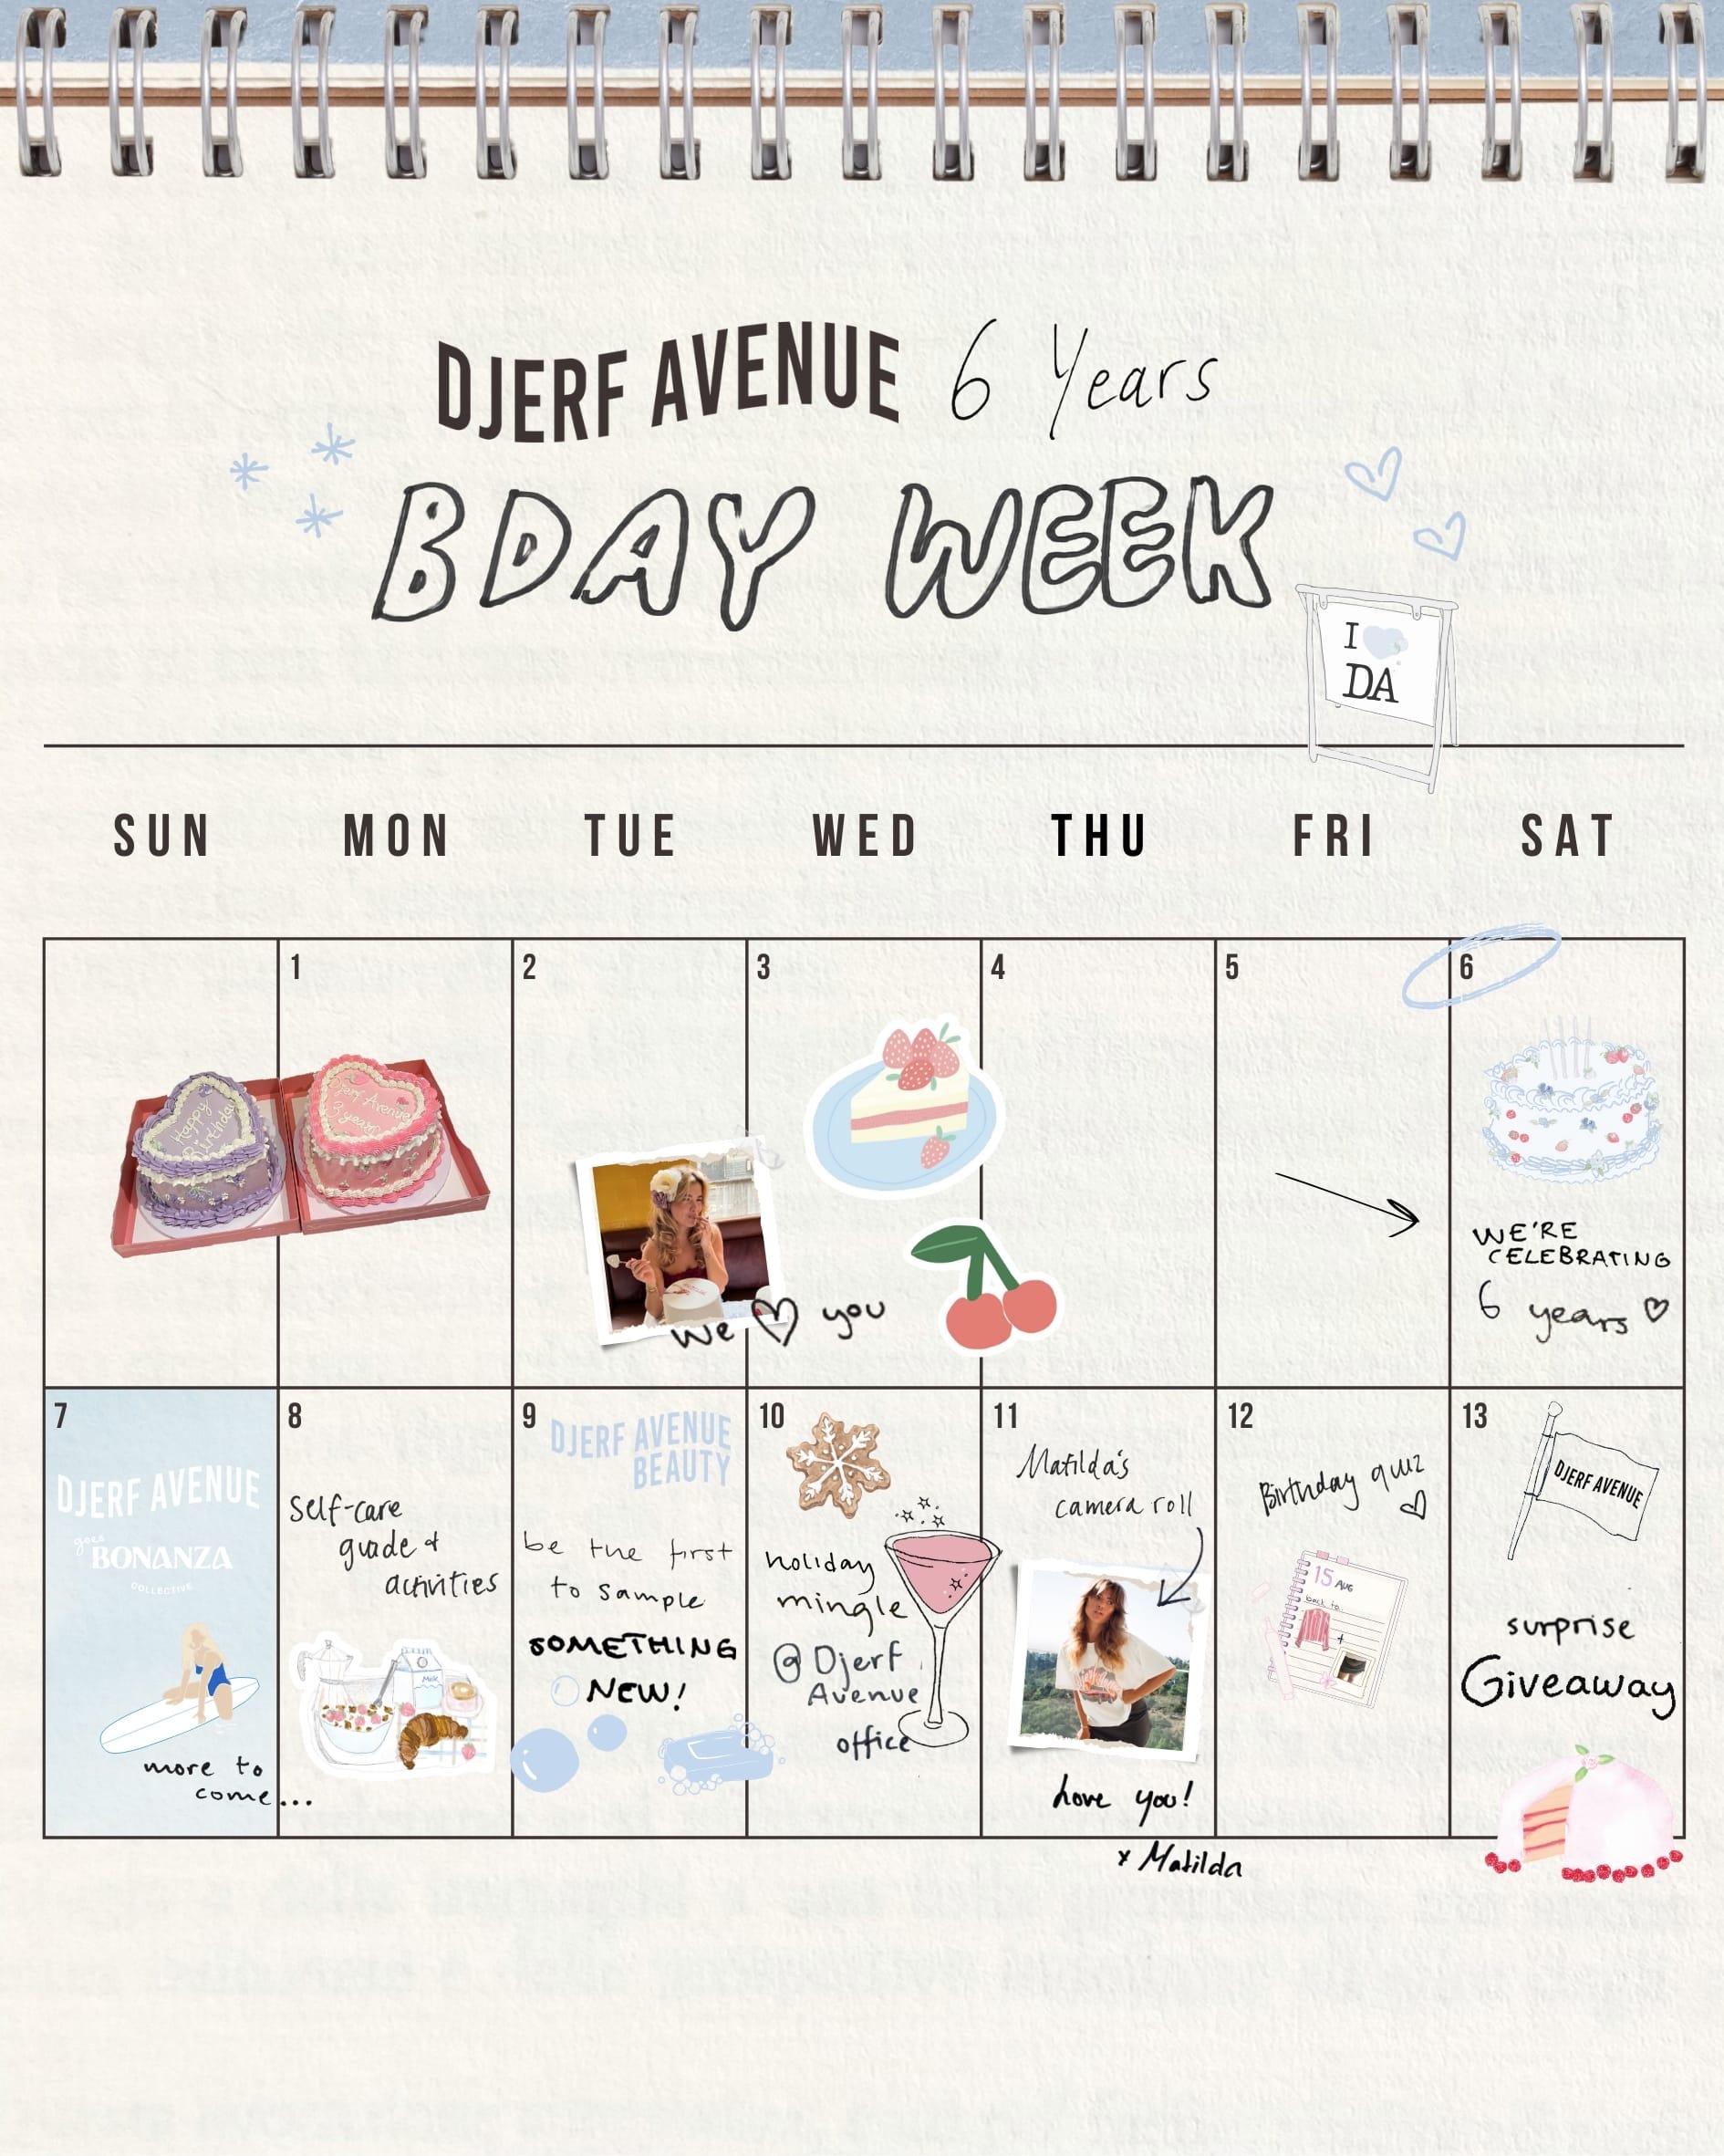 DJERF AVENUE 6 Years
BDAY WEEK
I
DA
SUN MON TUE WED THU FRI SAT
1 2 3 4 5 6
Happy
Birthday
Djerf Avenue
3 years
We you
WE'RE
CELEBRATING
6 years
7
DJERF AVENUE
goes
BONANZA
COLLECTIVE
more to
come...
8
Self-care
guide +
activities
Milk
9
DJERF AVENUE
BEAUTY
be the first
to sample
SOMETHING
NEW!
10
holiday
mingle
@ Djerf
Avenue
office
11
Matilda's
camera roll
Love you!
x Matilda
12
Birthday quiz
15 AUG
back to
+
13
DJERF AVENUE
surprise
Giveaway